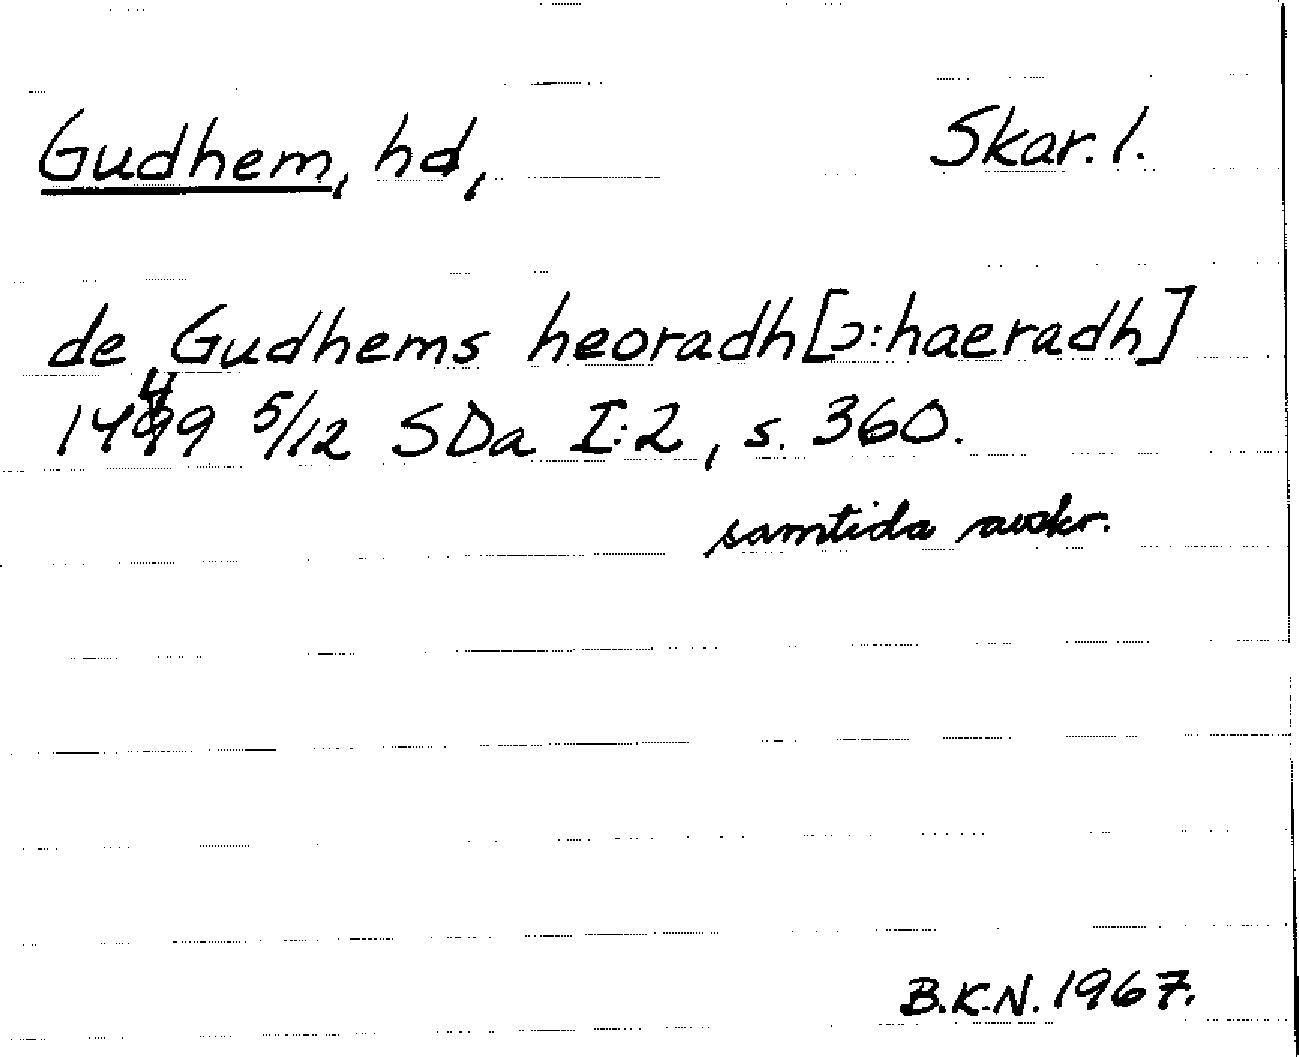 Gudhem, hd, Skar. l.
de Gudhems heoradh [ɔ: haeradh]
1449 5/12 SDa I:2, s. 360.
samtida avskr.
B.K.N. 1967.